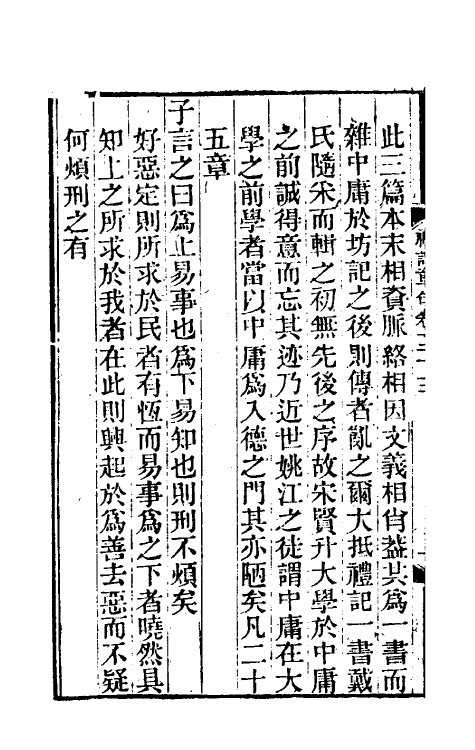 此三篇本末相資脈絡相因文義相肖蓋共爲一書而
雜中庸於坊記之後則傳者亂之爾大抵禮記一書戴
氏隨采而輯之初無先後之序故宋賢升大學於中庸
之前誠得意而忘其迹乃近世姚江之徒謂中庸在大
學之前學者當以中庸爲入德之門其亦陋矣凡二十
五章
子言之曰爲上易事也爲下易知也則刑不煩矣
好惡定則所求於民者有恆而易事爲之下者曉然具
知上之所求於我者在此則興起於爲善去惡而不疑
何煩刑之有